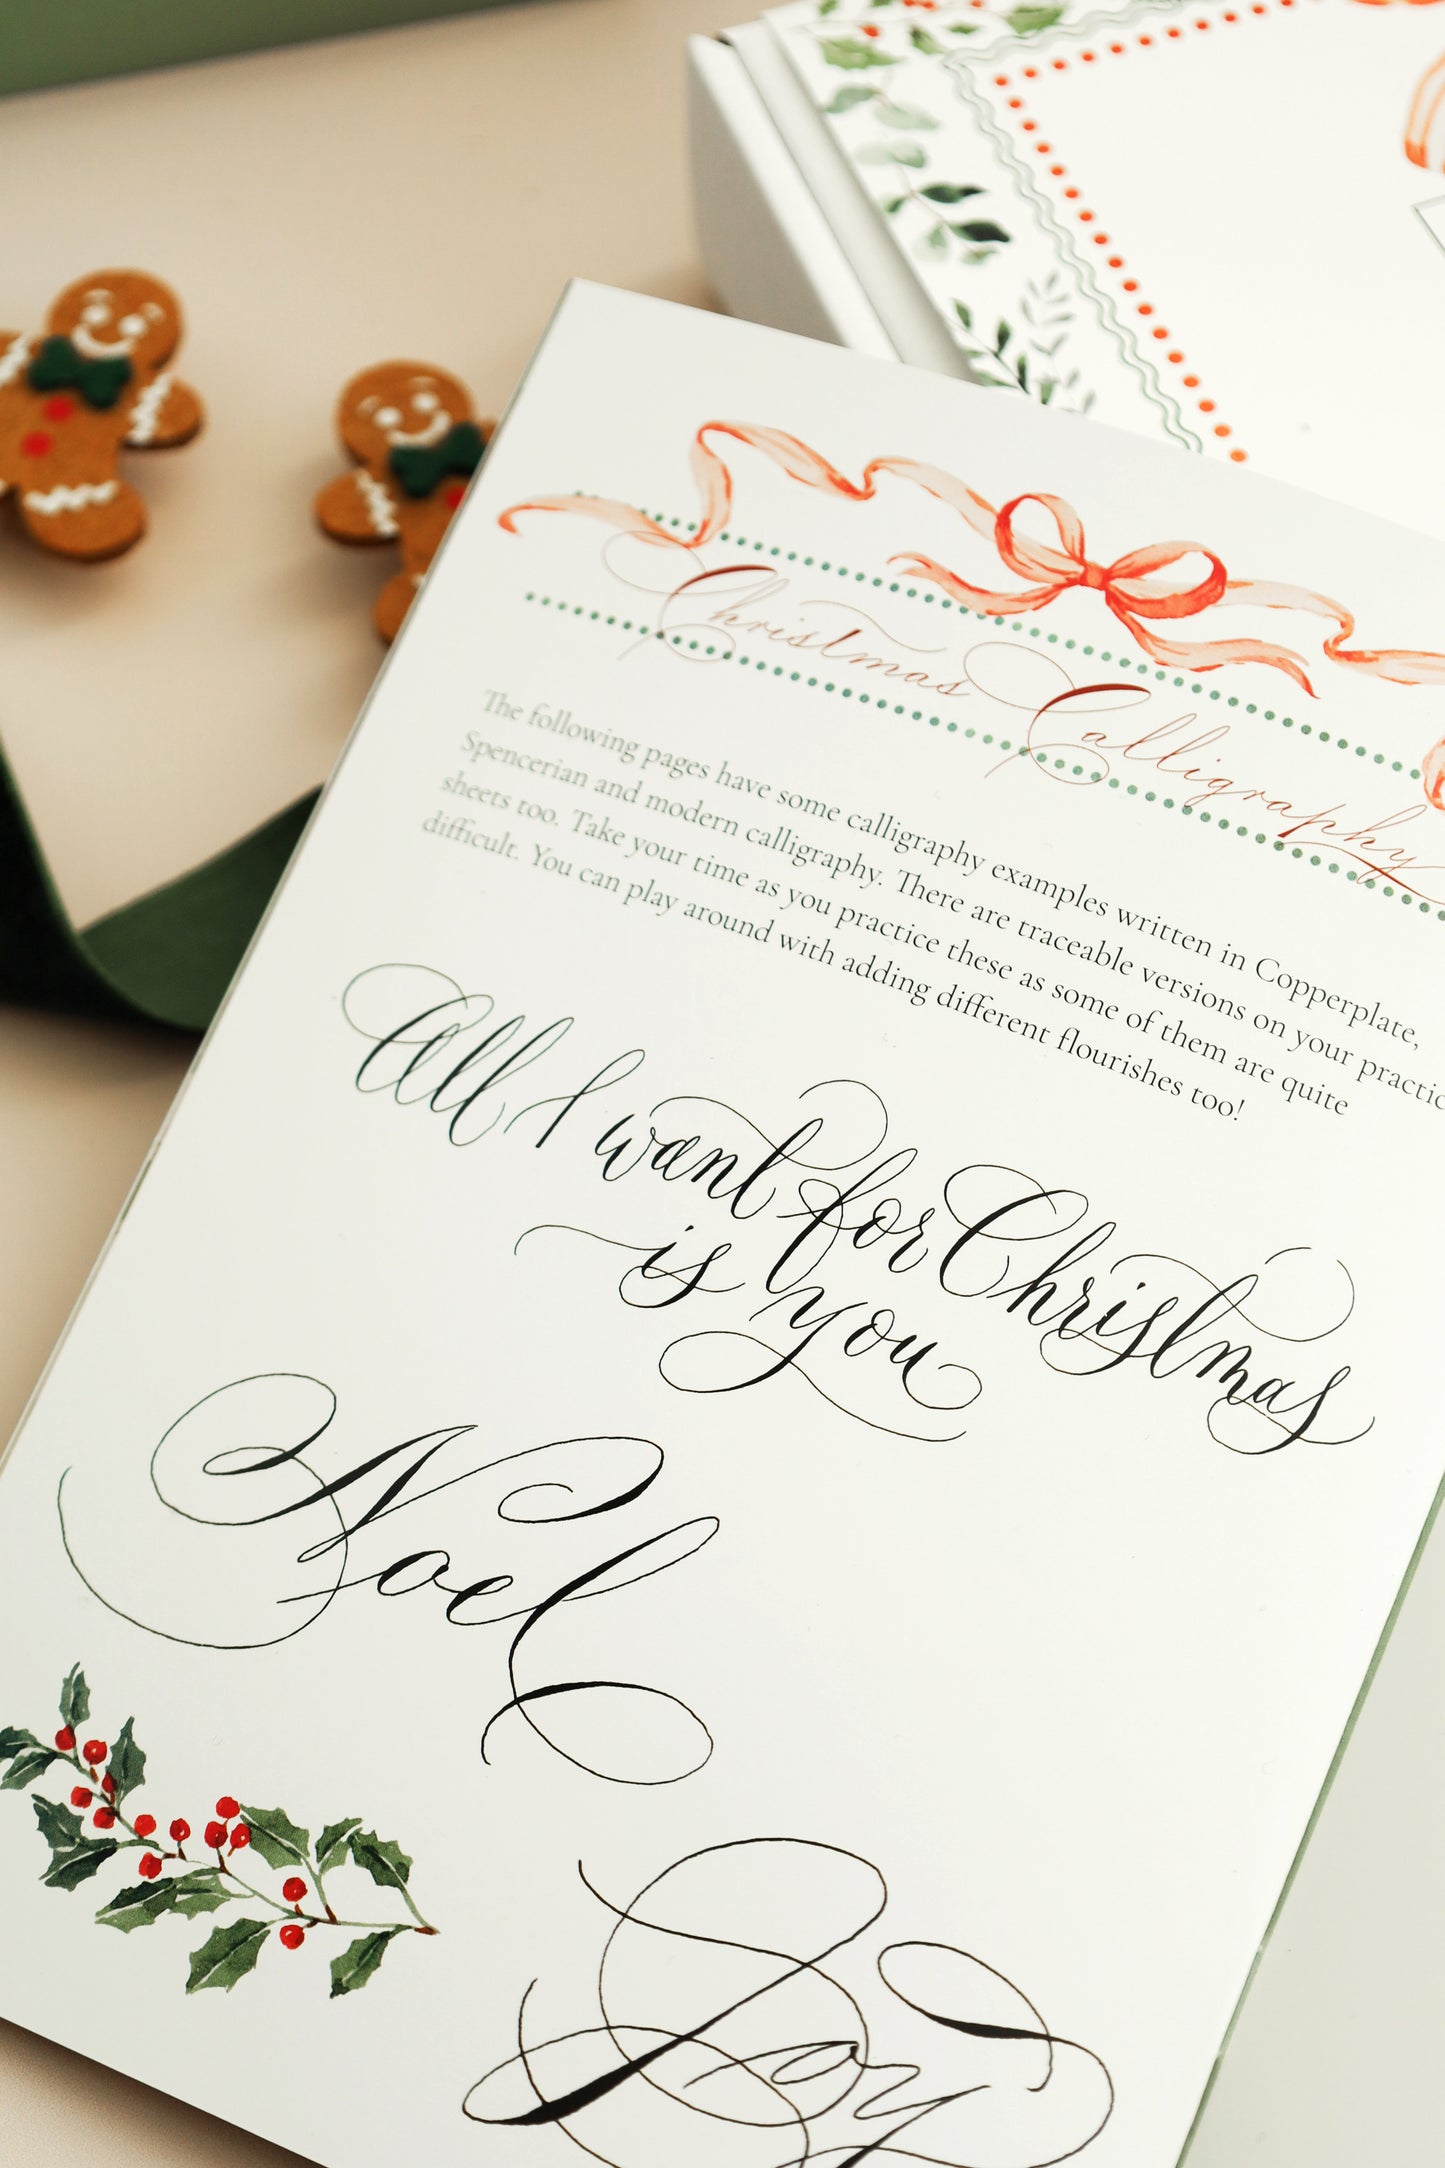 Christmas Calligraphy
The following pages have some calligraphy examples written in Copperplate,
Spencerian and modern calligraphy. There are traceable versions on your practic
sheets too. Take your time as you practice these as some of them are quite
difficult. You can play around with adding different flourishes too!
All I want for Christmas
is you
Noel
Joy